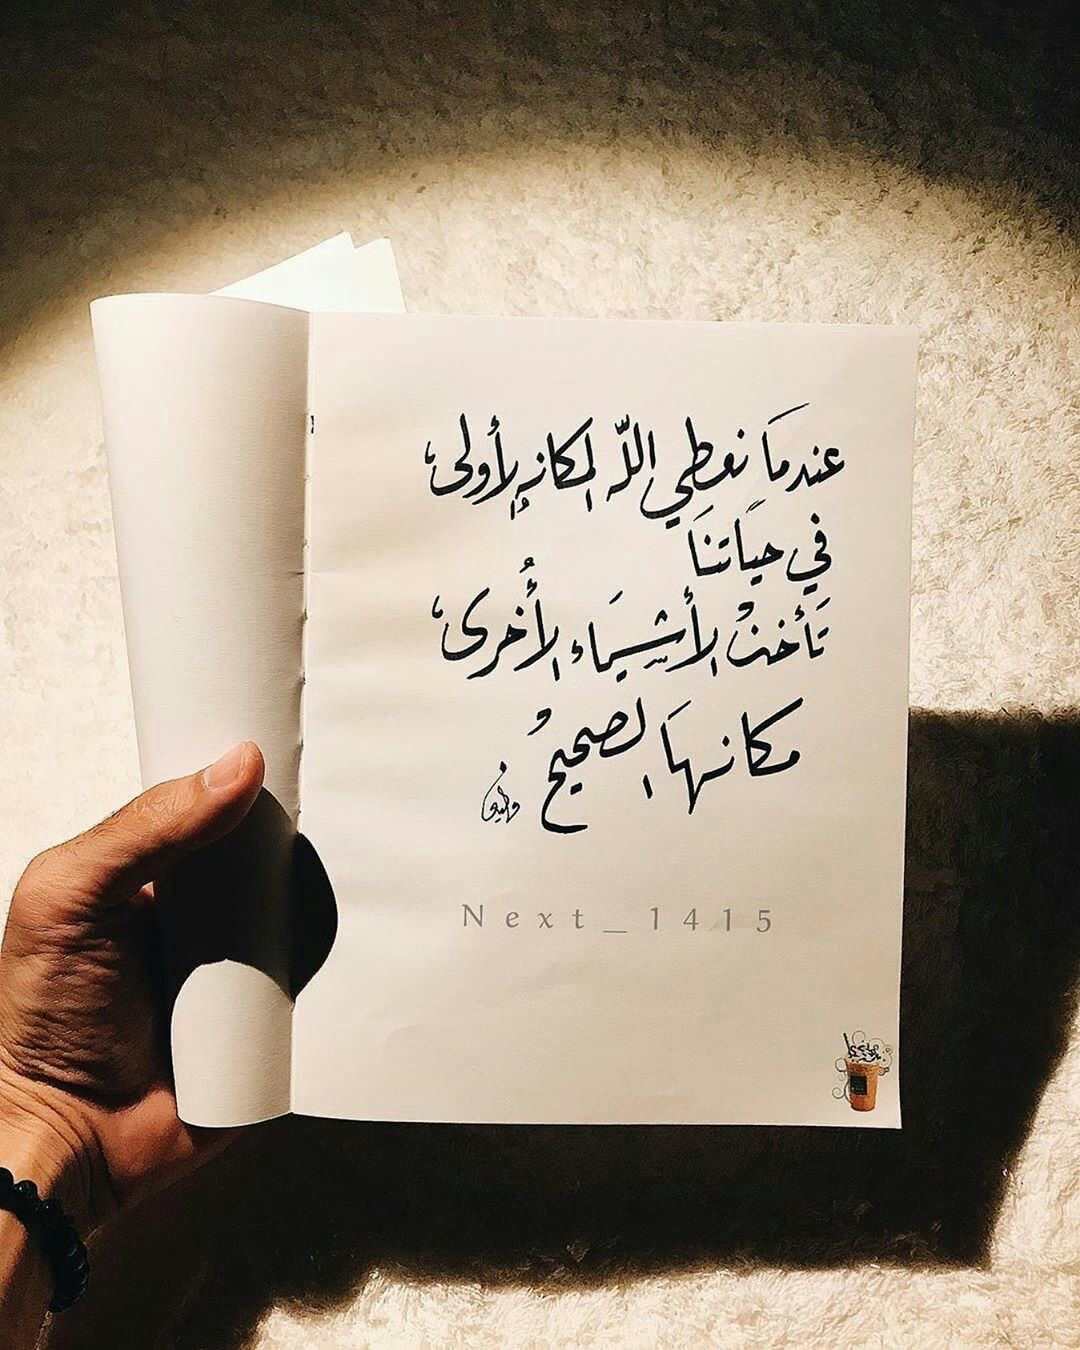 عندمَا نعطي اللّه المكانه الأولى،
في حيَاتنَا
تَأخذُ الأشيَاء الأُخرى،
مكانهَا الصحيحُ
Next_1415